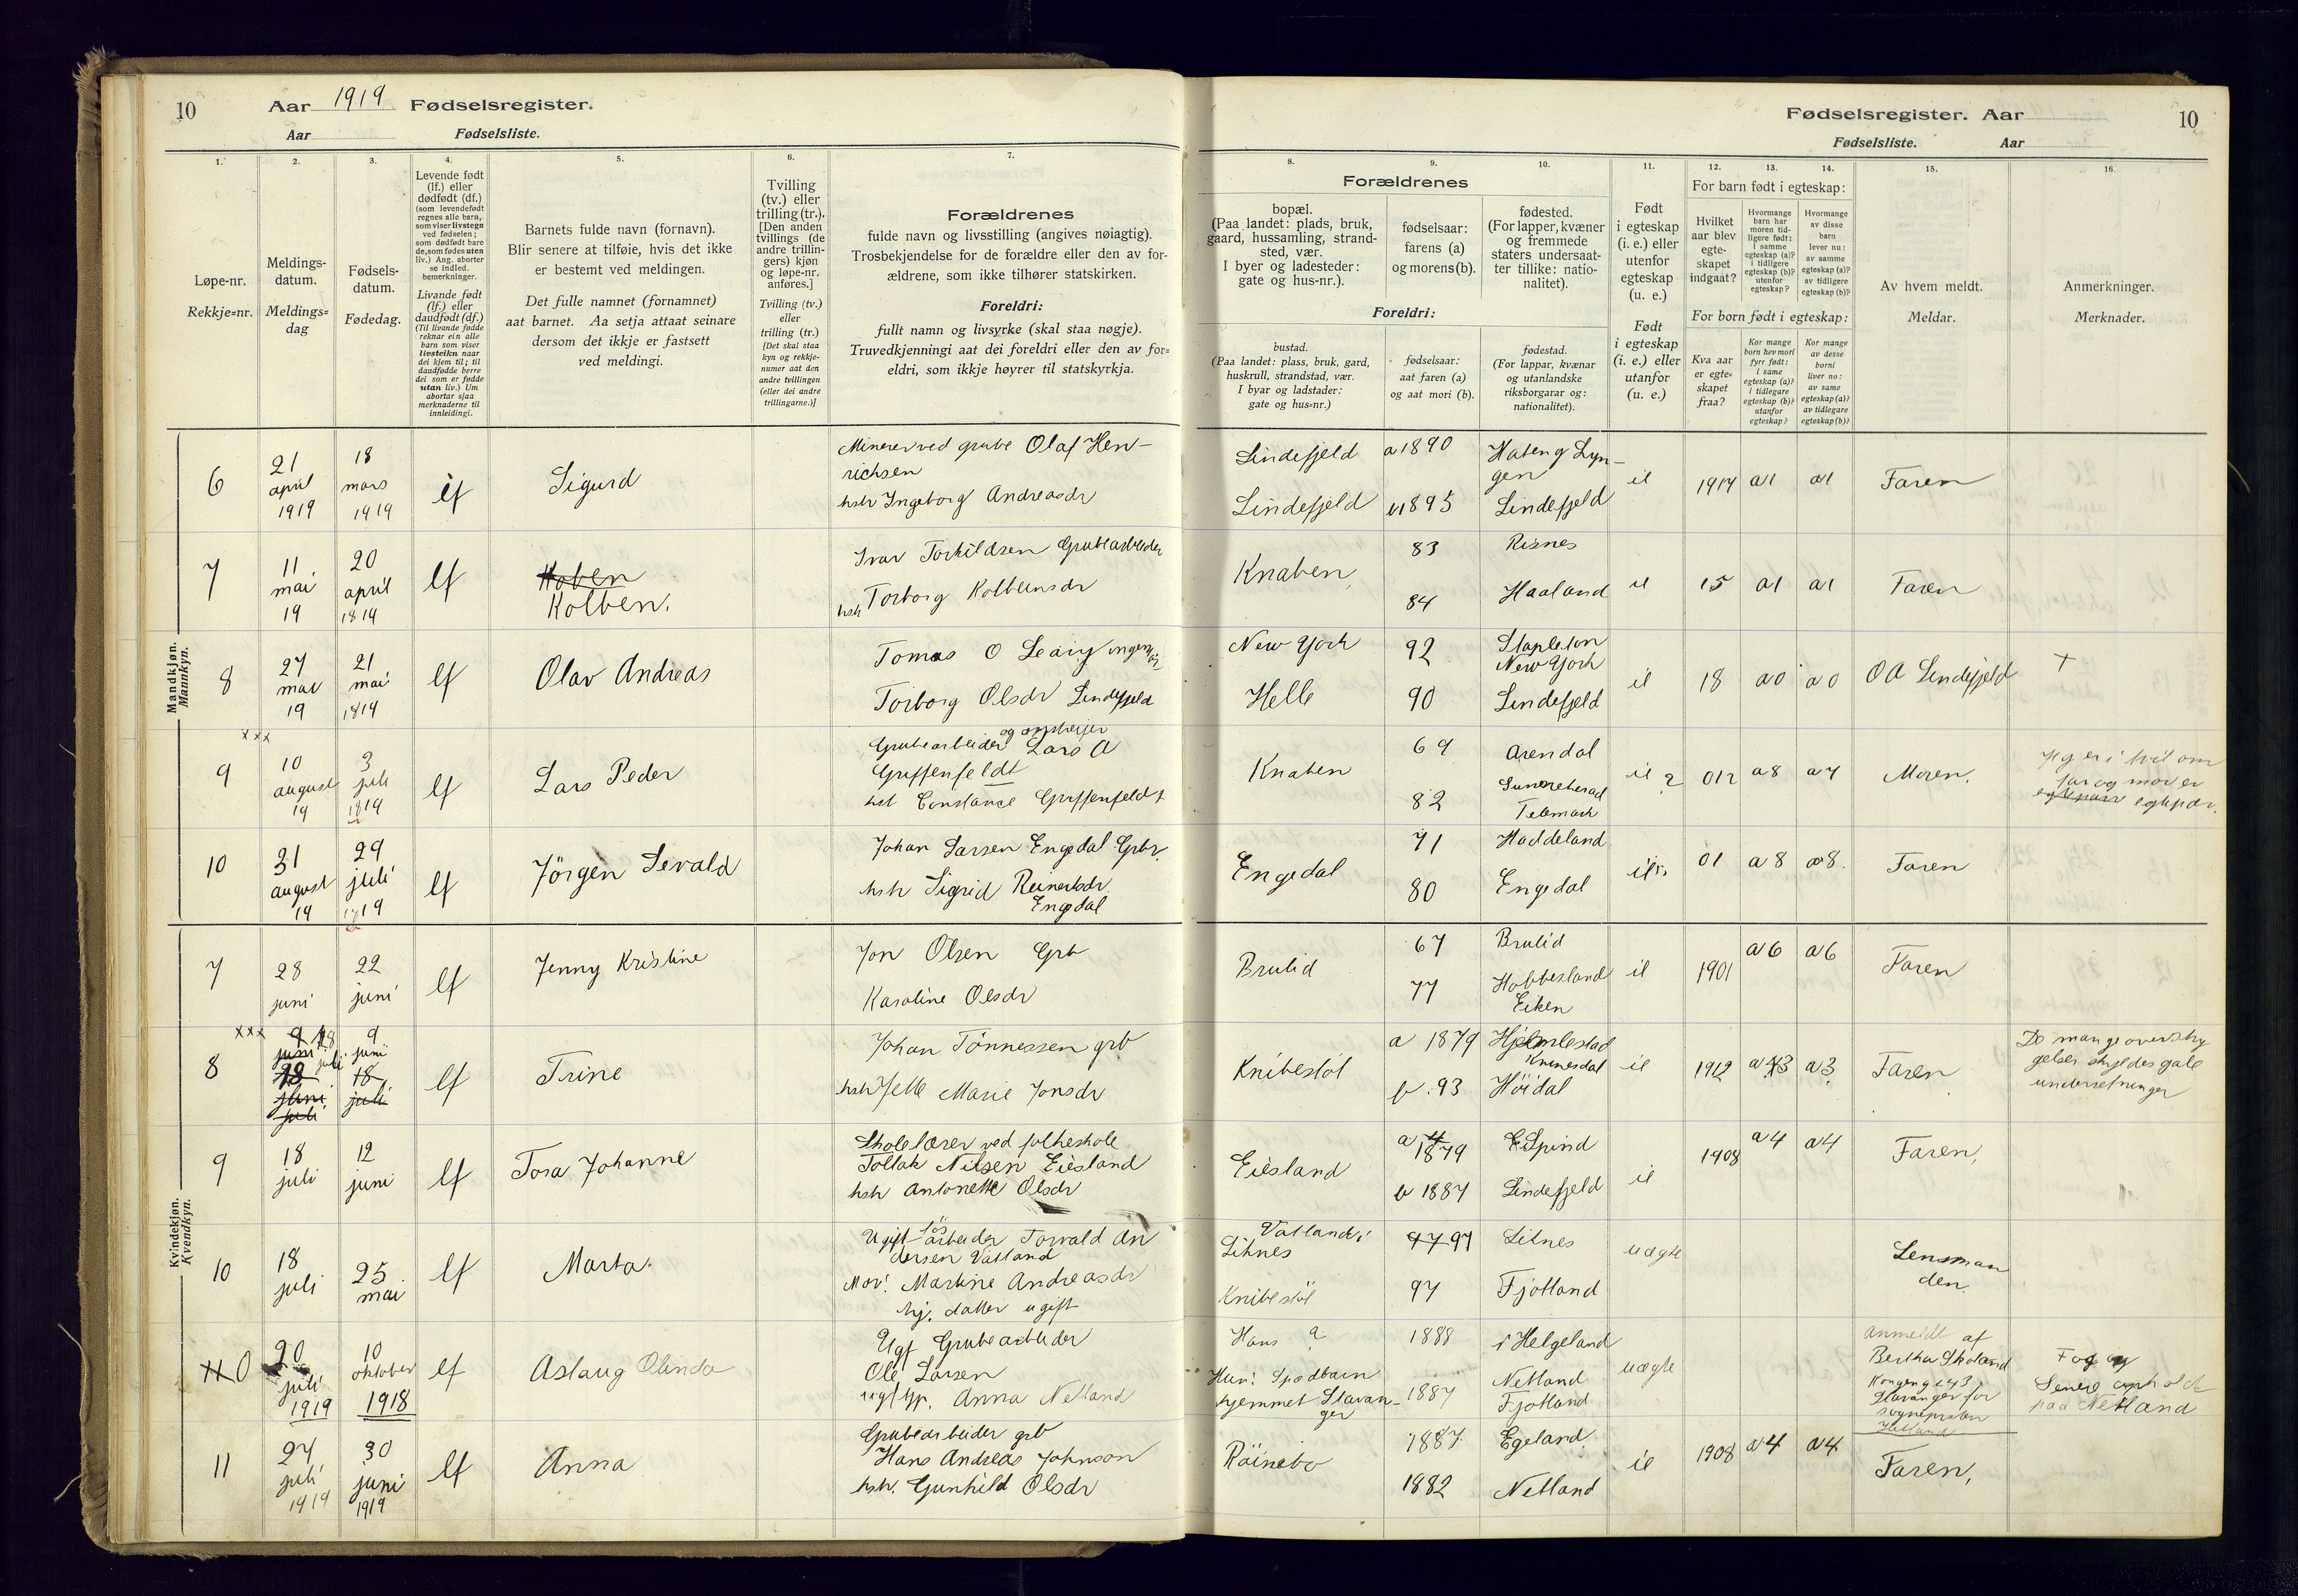 10 Aar 1919 Fødselsregister.
Aar Fødselsliste.
Fødselsregister. Aar 10
Fødselsliste. Aar
1. 2. 3. 4. 5. 6. 7. 8. 9. 10. 11. 12. 13. 14. 15. 16.
Løpe-nr.
Rekkje=nr.
Meldings-
datum.
Meldings=
dag
Fødsels-
datum.
Fødedag.
Levende født
(lf.) eller
dødfødt (df.)
(som levendefødt
regnes alle barn,
som viser livstegn
ved fødselen;
som dødfødt bare
de, som fødes uten
liv.) Ang. aborter
se indled.
bemerkninger.
Livande født
(lf.) eller
daudfødt (df.)
(Til livande fødde
reknar ein alle
barn som viser
livsteikn naar
dei kjem til; til
daudfødde berre
dei som er fødde
utan liv.) Um
abortar sjaa
merknaderne til
innleidingi.
Barnets fulde navn (fornavn).
Blir senere at tilføie, hvis det ikke
er bestemt ved meldingen.
Det fulle namnet (fornamnet)
aat barnet. Aa setja attaat seinare
dersom det ikkje er fastsett
ved meldingi.
Tvilling
(tv.) eller
trilling (tr.).
[Den anden
tvillings (de
andre trillin-
gers) kjøn
og løpe-nr.
anføres.]
Tvilling (tv.)
eller
trilling (tr.)
[Det skal staa
kyn og rekkje-
numer aat den
andre tvillingen
(eller dei andre
trillingarne.)]
Forældrenes
fulde navn og livsstilling (angives nøiagtig).
Trosbekjendelse for de forældre eller den av for-
ældrene, som ikke tilhører statskirken.
Foreldri:
fullt namn og livsyrke (skal staa nøgje).
Truvedkjenningi aat dei foreldri eller den av for=
eldri, som ikkje høyrer til statskyrkja.
Forældrenes
bopæl.
(Paa landet: plads, bruk,
gaard, hussamling, strand-
sted, vær.
I byer og ladesteder:
gate og hus-nr.).
fødselsaar:
farens (a)
og morens (b).
fødested.
(For lapper, kvæner
og fremmede
staters undersaat-
ter tillike: natio-
nalitet).
Foreldri:
bustad.
(Paa landet: plass, bruk, gard,
huskrull, strandstad, vær.
I byar og ladstader:
gate og hus=nr.)
fødselsaar:
aat faren (a)
og aat mori (b).
fødestad.
(For lappar, kvænar
og utanlandske
riksborgarar og:
nationalitet).
Født
i egteskap
(i. e.) eller
utenfor
egteskap
(u. e.)
Født
i egteskap
(i. e.) eller
utanfor
(u. e.)
For barn født i egteskap:
Hvilket
aar blev
egte-
skapet
indgaat?
Hvormange
barn har
moren tid-
ligere født:
i samme
egteskap (a)?
i tidligere
egteskap (b)?
utenfor
egteskap?
Hvormange
av disse
barn
lever nu:
av samme
egteskap (a)?
av tidligere
egteskap (b)?
For born født i egteskap:
Kva aar
er egte=
skapet
fraa?
Kor mange
born hev mori
fyrr født:
i same
egteskap (a)?
i tidlegare
egteskap (b)?
utanfor
egteskap?
Kor mange
av desse
borni
liver no:
av same
egteskap (a)?
av tidlegare
egteskap (b)?
Av hvem meldt.
Meldar.
Anmerkninger.
Merknader.
Mandkjøn.
Mannkyn.
6 21 april 1919 18 mars 1919 lf Sigurd
Minerer ved grube Olaf Hen-
richsen
hstr Ingeborg Andreasdr
Lindefjeld a 1890 Hateng Lyn-
gen
Lindefjeld b 1895 Lindefjeld
1914 a1 a1 Faren
7 11 mai 19 20 april 1919 lf Kolben.
Ivar Torkildsen Grubearbeider
hstr Torborg Kolbensdr
Knaben 83 Risnes
84 Haaland
15 a1 a1 Faren
8 27 mai 19 21 mai 1919 lf Olav Andreas
Tomas O Leary ingeniör
Torborg Olsdr Lindefjeld
New York 92 Stapleton
New York
Helle 90 Lindefjeld
18 a0 a0 O A Lindefjeld +
xxx
9 10 august 19 3 juli 1919 lf Lars Peder
Grubearbeider og opstreifer Lars A
Griffenfeldt
hst Constance Griffenfeldt
Knaben 69 Arendal
82 Telemark
? a8 a7 Moren.
Jeg er i tvil om
far og mor er
egtepar.
10 31 august 19 29 juli 1919 lf Jörgen Sevald
Johan Larsen Engedal Grbr.
hstr Sigrid Reinertsdr.
Engedal
Engedal 71 Haddeland
80 Engedal
01 a8 a8 Faren
Kvindekjøn.
Kvendkyn.
7 28 juni 22 juni lf Jenny Kristine
Jon Olsen Grb
Karoline Olsdr
Brulid 67 Brulid
77 Hobbesland
Eiken
1901 a6 a6 Faren
xxx
8 18 juli 9 juni lf Trine
Johan Tönnessen grb
hstr Marie Jonsdr
Knibestöl a 1879 Hjelmlestad
Kvinesdal
b. 93 Höidal
1912 a3 a3 Faren
De mange overstry
gelser skyldes gale
underretninger
9 18 juli 12 juni lf Tora Johanne
Skolelærer ved folkeskole
Tollak Nilsen Eiesland
hstr Antonette Olsdr
Eiesland a 1879 Spind
b 1887 Lindefjeld
1908 a4 a4 Faren,
10 18 juli 25 mai lf Marta.
Ugift lösarbeider Torvald An
dersen Vatland
Mor: Martine Andreasdr
hj. datter ugift
Vatland i
Litnes 97 Litnes
Knibestöl 97 Fjotland
uægte
Lensman
den.
10 20 juli 1919 10 oktober 1918 lf Aslaug Olinda
Ugf Grubearbeider
Ole Larsen
Anna Netland
Hans ? 1888 i Helgeland
Hun: Spædbarn
hjemmet Stavan-
ger
1887 Netland
Fjotland
uægte
Anmeldt af
Bertha Skoland
Kongeng 43
Stavanger for
sogneprsten
Senere opholdt
paa Netland
11 27 juli 1919 30 juni 1919 lf Anna
Grubearbeider grb
Hans Andreas Johnson
hstr. Gunhild Olsdr
Röinebo 1887 Egeland
1882 Netland
1908 a4 a4 Faren,